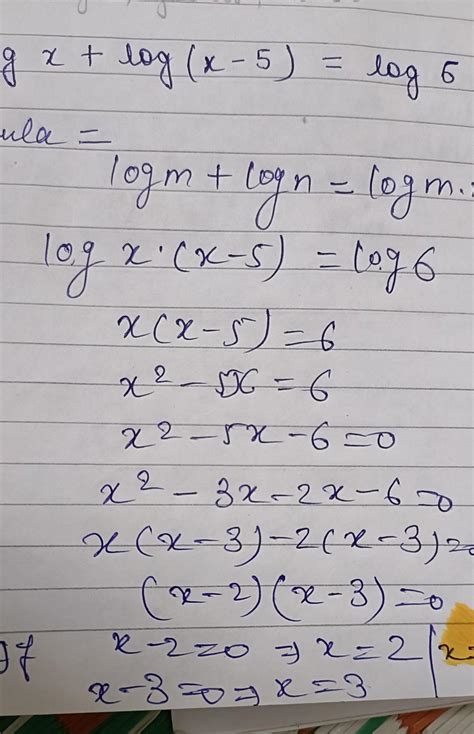 g x + log (x - 5) = log 6
ula =
log m + log n = log m.
log x · (x - 5) = log 6
x (x - 5) = 6
x² - 5x = 6
x² - 5x - 6 = 0
x² - 3x - 2x - 6 = 0
x (x - 3) - 2 (x - 3) = 0
(x - 2) (x - 3) = 0
If x - 2 = 0 ⇒ x = 2 | x =
x - 3 = 0 ⇒ x = 3